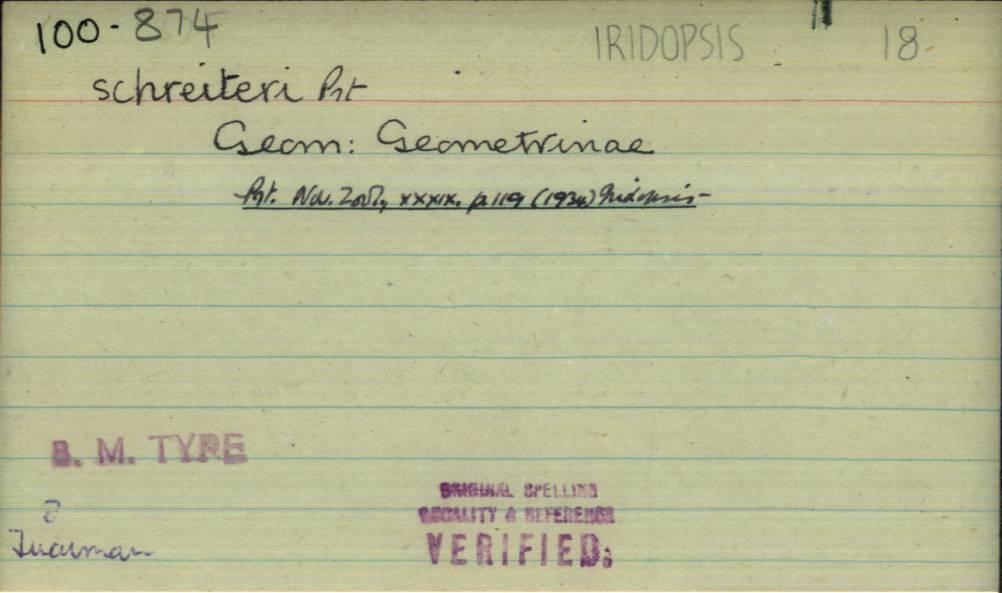 100-874 IRIDOPSIS 18
schreiteri Prt
Geom: Geometrinae
Prt. Nov. Zool., xxxix. p. 119 (1934) Iridopsis-
B. M. TYPE
ORIGINAL SPELLING
LOCALITY & REFERENCE
VERIFIED.
Tucuman